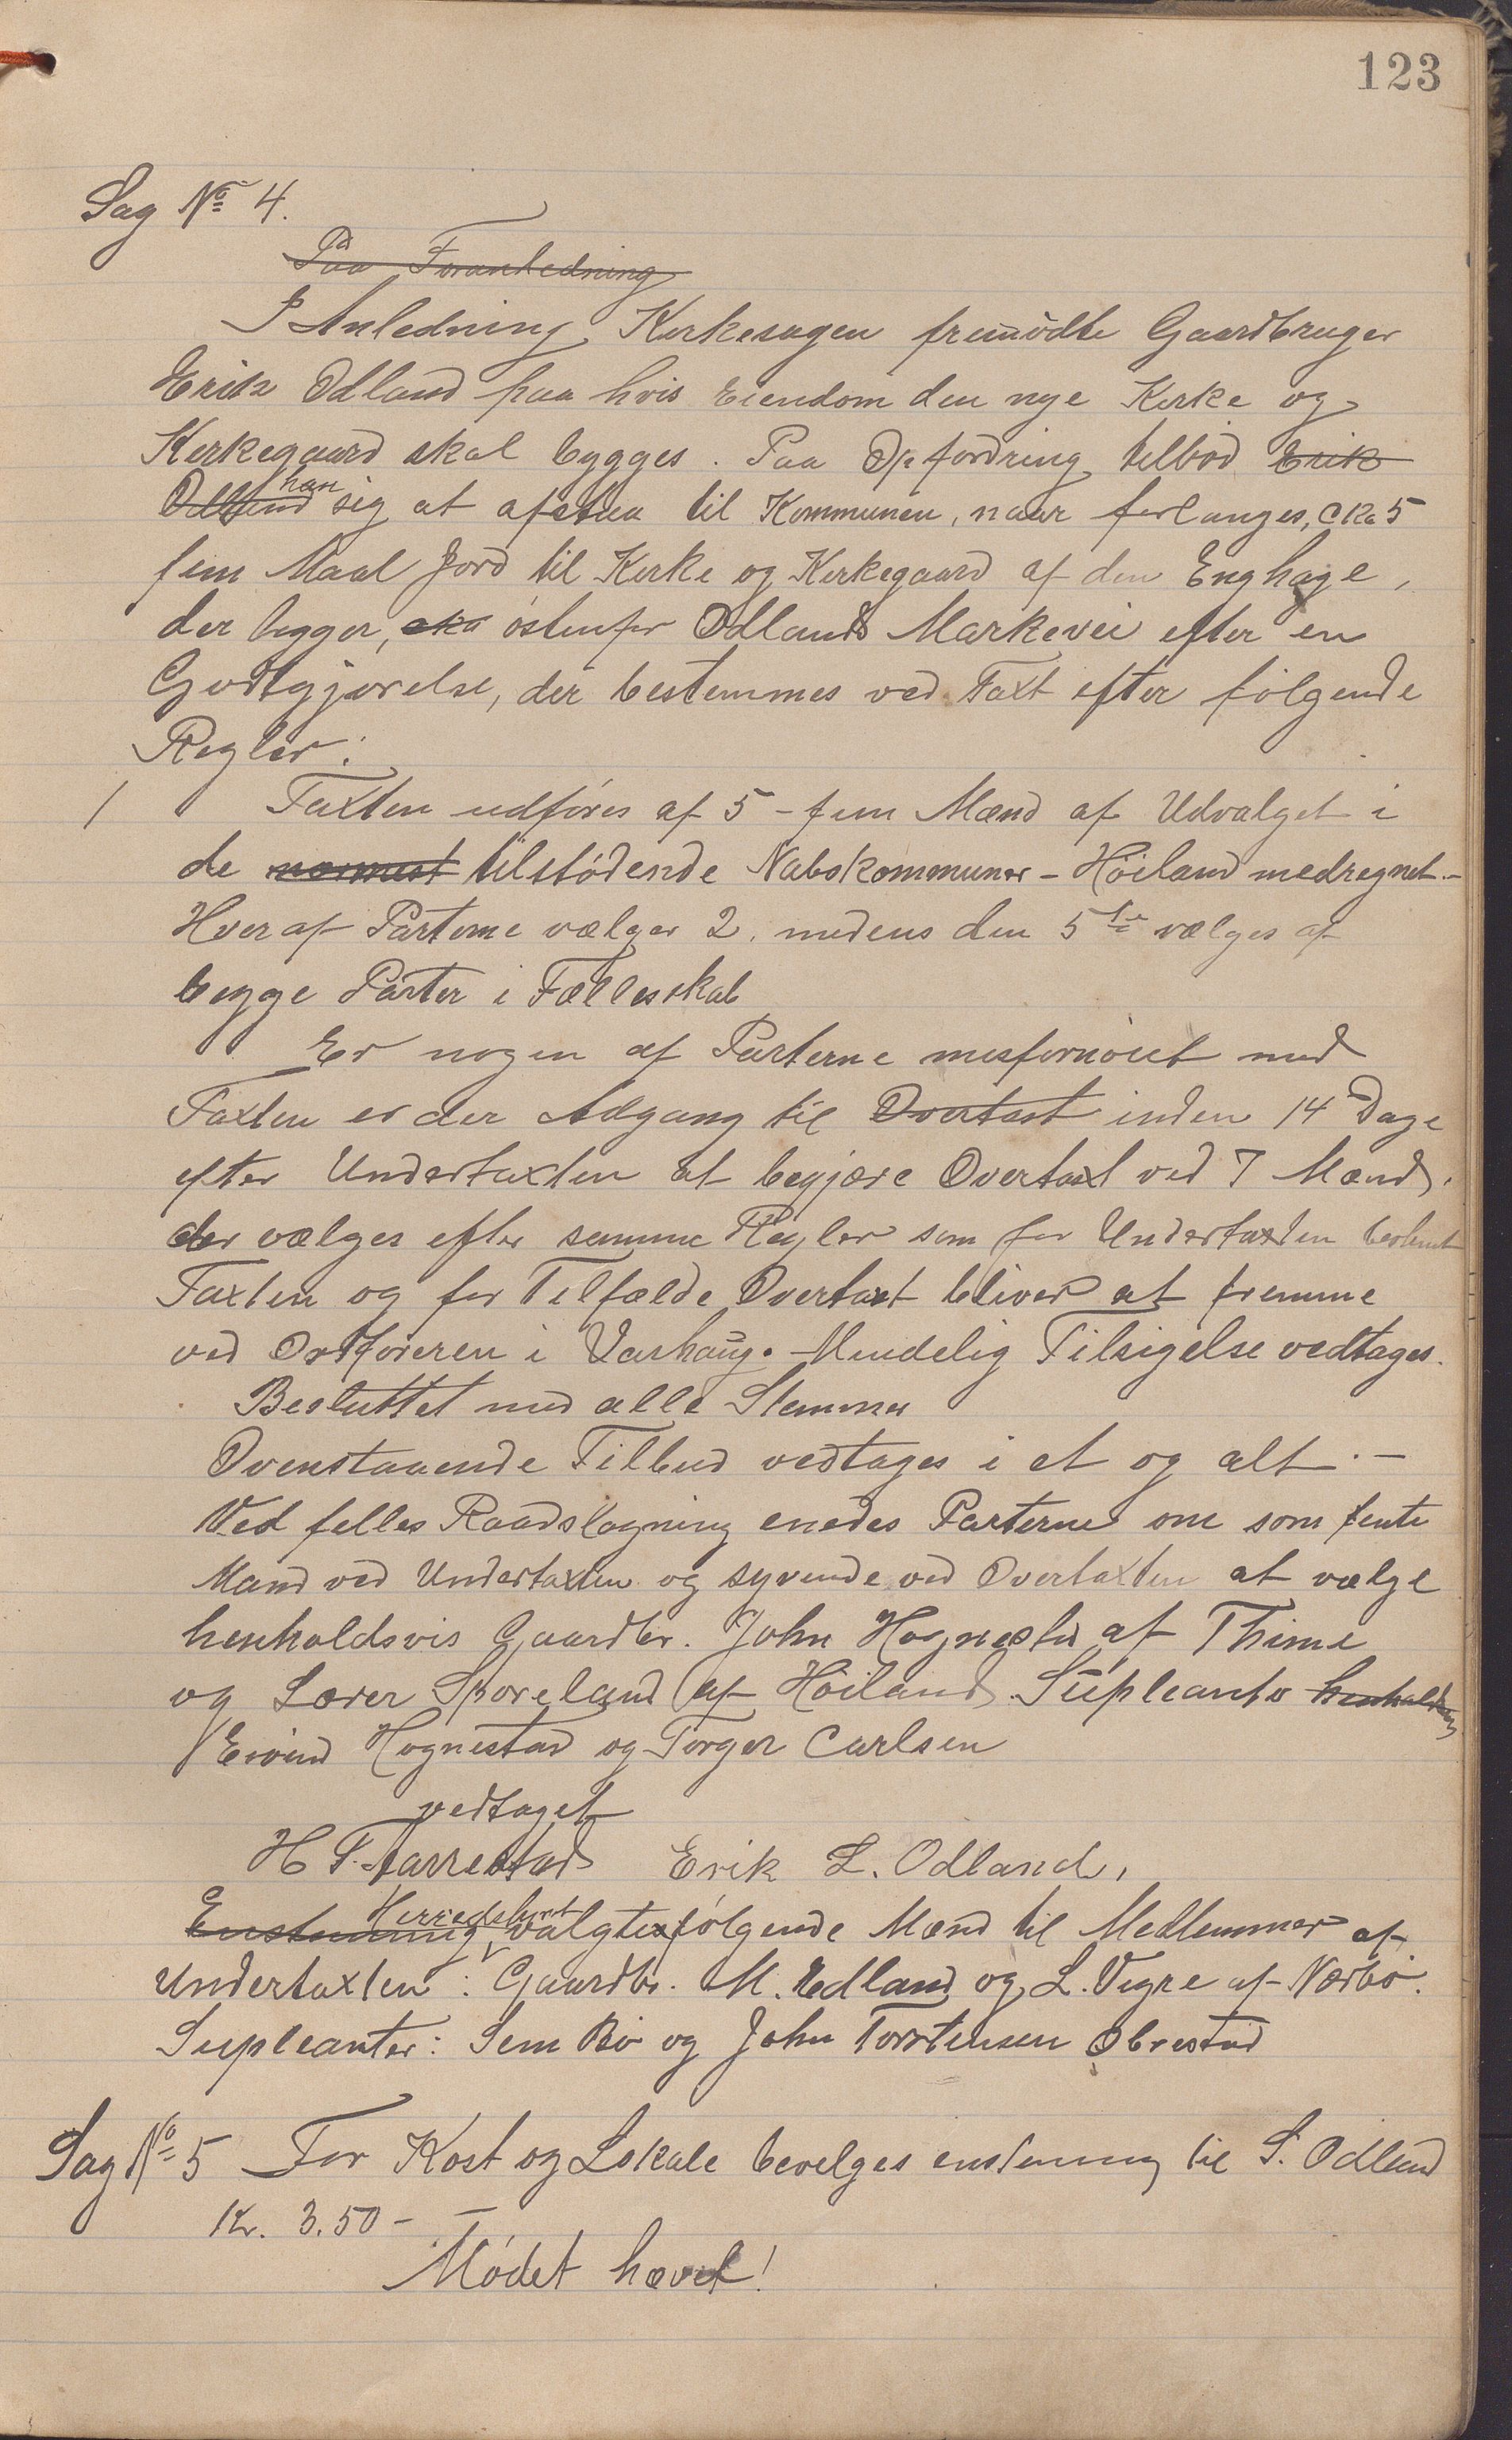 123
Sag No 4.
Paa Foranledning
I Anledning Kirkesagen fremmødte Gaardbruger
Erik Odland paa hvis Eiendom den nye Kirke og
Kirkegaard skal bygges. Paa Opfordring tilbød Erik
Odland han sig at afstaa til Kommunen, naar forlanges, cka 5
fem Maal Jord til Kirke og Kirkegaard af den Enghage,
der ligger, cka østenfor Odlands Markevei efter en
Godtgjørelse, der bestemmes ved Taxt efter følgende
Regler:
1 Taxten udføres af 5 - fem Mænd af Udvalget i
de nærmest tilstødende Nabokommuner - Høiland medregnet. -
Hver af Parterne vælger 2, medens den 5te vælges af
begge Parter i Fællesskab
Er nogen af Parterne misfornøiet med
Taxten er der Adgang til Overtaxt inden 14 Dage
efter Undertaxten at begjære Overtaxt ved 7 Mænd,
der vælges efter samme Regler som for Undertaxten bestemt
Taxten og for Tilfælde Overtaxt bliver at fremme
ved Ordføreren i Varhaug. - Mundelig Tilsigelse vedtages.
Besluttet med alle Stemmer
Ovenstaaende Tilbud vedtages i et og alt. -
Ved felles Raadslagning enedes Parterne om som femte
Mand ved Undertaxten og syvende ved Overtaxten at vælge
henholdsvis Gaardbr. John Hognestad af Thime
og Lærer Skoreland af Høiland. Supleanter henholdsvis
Eivind Hognestad og Torger Carlsen
vedtaget
H S. Aarrestad Erik L. Odland,
Enstemmig Herredsstyret valgte følgende Mænd til Medlemmer af
Undertaxten: Gaardbr. M. Edland og L. Vigre af Nærbø.
Supleanter: Sem Bø og John Torstensen Obrestad
Sag No 5 For Kost og Lokale bevilges enstemmig til S. Odland
Kr. 3.50 -
Mødet hævet!